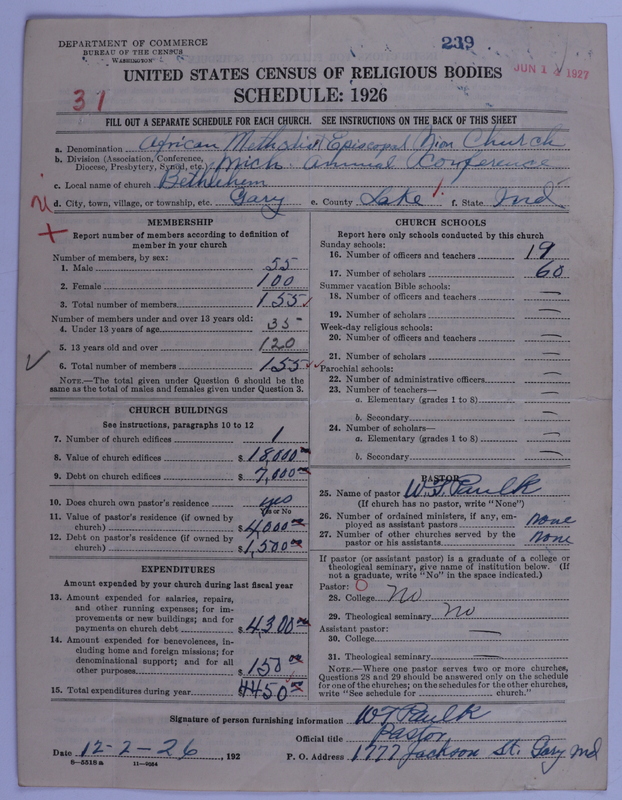 DEPARTMENT OF COMMERCE
BUREAU OF THE CENSUS
WASHINGTON
239
JUN 1 1927
UNITED STATES CENSUS OF RELIGIOUS BODIES
SCHEDULE: 1926
31
FILL OUT A SEPARATE SCHEDULE FOR EACH CHURCH. SEE INSTRUCTIONS ON THE BACK OF THIS SHEET
a. Denomination African Methodist Episcopal Zion Church
b. Division (Association, Conference, Diocese, Presbytery, Synod, etc.) Mich. Annual Conference
c. Local name of church Bethlehem
d. City, town, village, or township, etc. Gary e. County Lake f. State Ind
MEMBERSHIP
Report number of members according to definition of
member in your church
Number of members, by sex:
1. Male 55
2. Female 100
3. Total number of members 155
Number of members under and over 13 years old:
4. Under 13 years of age 35
5. 13 years old and over 120
6. Total number of members 155
NOTE.—The total given under Question 6 should be
same as the total of males and females given under Question 3.
CHURCH BUILDINGS
See instructions, paragraphs 10 to 12
7. Number of church edifices 1
8. Value of church edifices $ 18,000 00
9. Debt on church edifices $ 7,000 00
10. Does church own pastor's residence yes
Yes or No
11. Value of pastor's residence (if owned by
church) $ 4,000 00
12. Debt on pastor's residence (if owned by
church) $ 1,500 00
EXPENDITURES
Amount expended by your church during last fiscal year
13. Amount expended for salaries, repairs,
and other running expenses; for im-
provements or new buildings; and for
payments on church debt $ 4,300 00
14. Amount expended for benevolences, in-
cluding home and foreign missions; for
denominational support; and for all
other purposes $ 150 00
15. Total expenditures during year 4450 00
CHURCH SCHOOLS
Report here only schools conducted by this church
Sunday schools:
16. Number of officers and teachers 19
17. Number of scholars 60
Summer vacation Bible schools:
18. Number of officers and teachers —
19. Number of scholars —
Week-day religious schools:
20. Number of officers and teachers —
21. Number of scholars —
Parochial schools:
22. Number of administrative officers —
23. Number of teachers—
a. Elementary (grades 1 to 8) —
b. Secondary —
24. Number of scholars—
a. Elementary (grades 1 to 8) —
b. Secondary —
PASTOR
25. Name of pastor W. T. Paulk
(If church has no pastor, write "None")
26. Number of ordained ministers, if any, em-
ployed as assistant pastors none
27. Number of other churches served by the
pastor or his assistants none
If pastor (or assistant pastor) is a graduate of a college or
theological seminary, give name of institution below. (If
not a graduate, write "No" in the space indicated.)
Pastor: 0
28. College No
29. Theological seminary No
Assistant pastor:
30. College —
31. Theological seminary —
NOTE.—Where one pastor serves two or more churches,
Questions 28 and 29 should be answered only on the schedule
for one of the churches; on the schedules for the other churches,
write "See schedule for church."
Signature of person furnishing information W T Paulk
Official title Pastor
Date 12-2-26, 192 P. O. Address 1777 Jackson St. Gary Ind
8—5518 a 11—9084